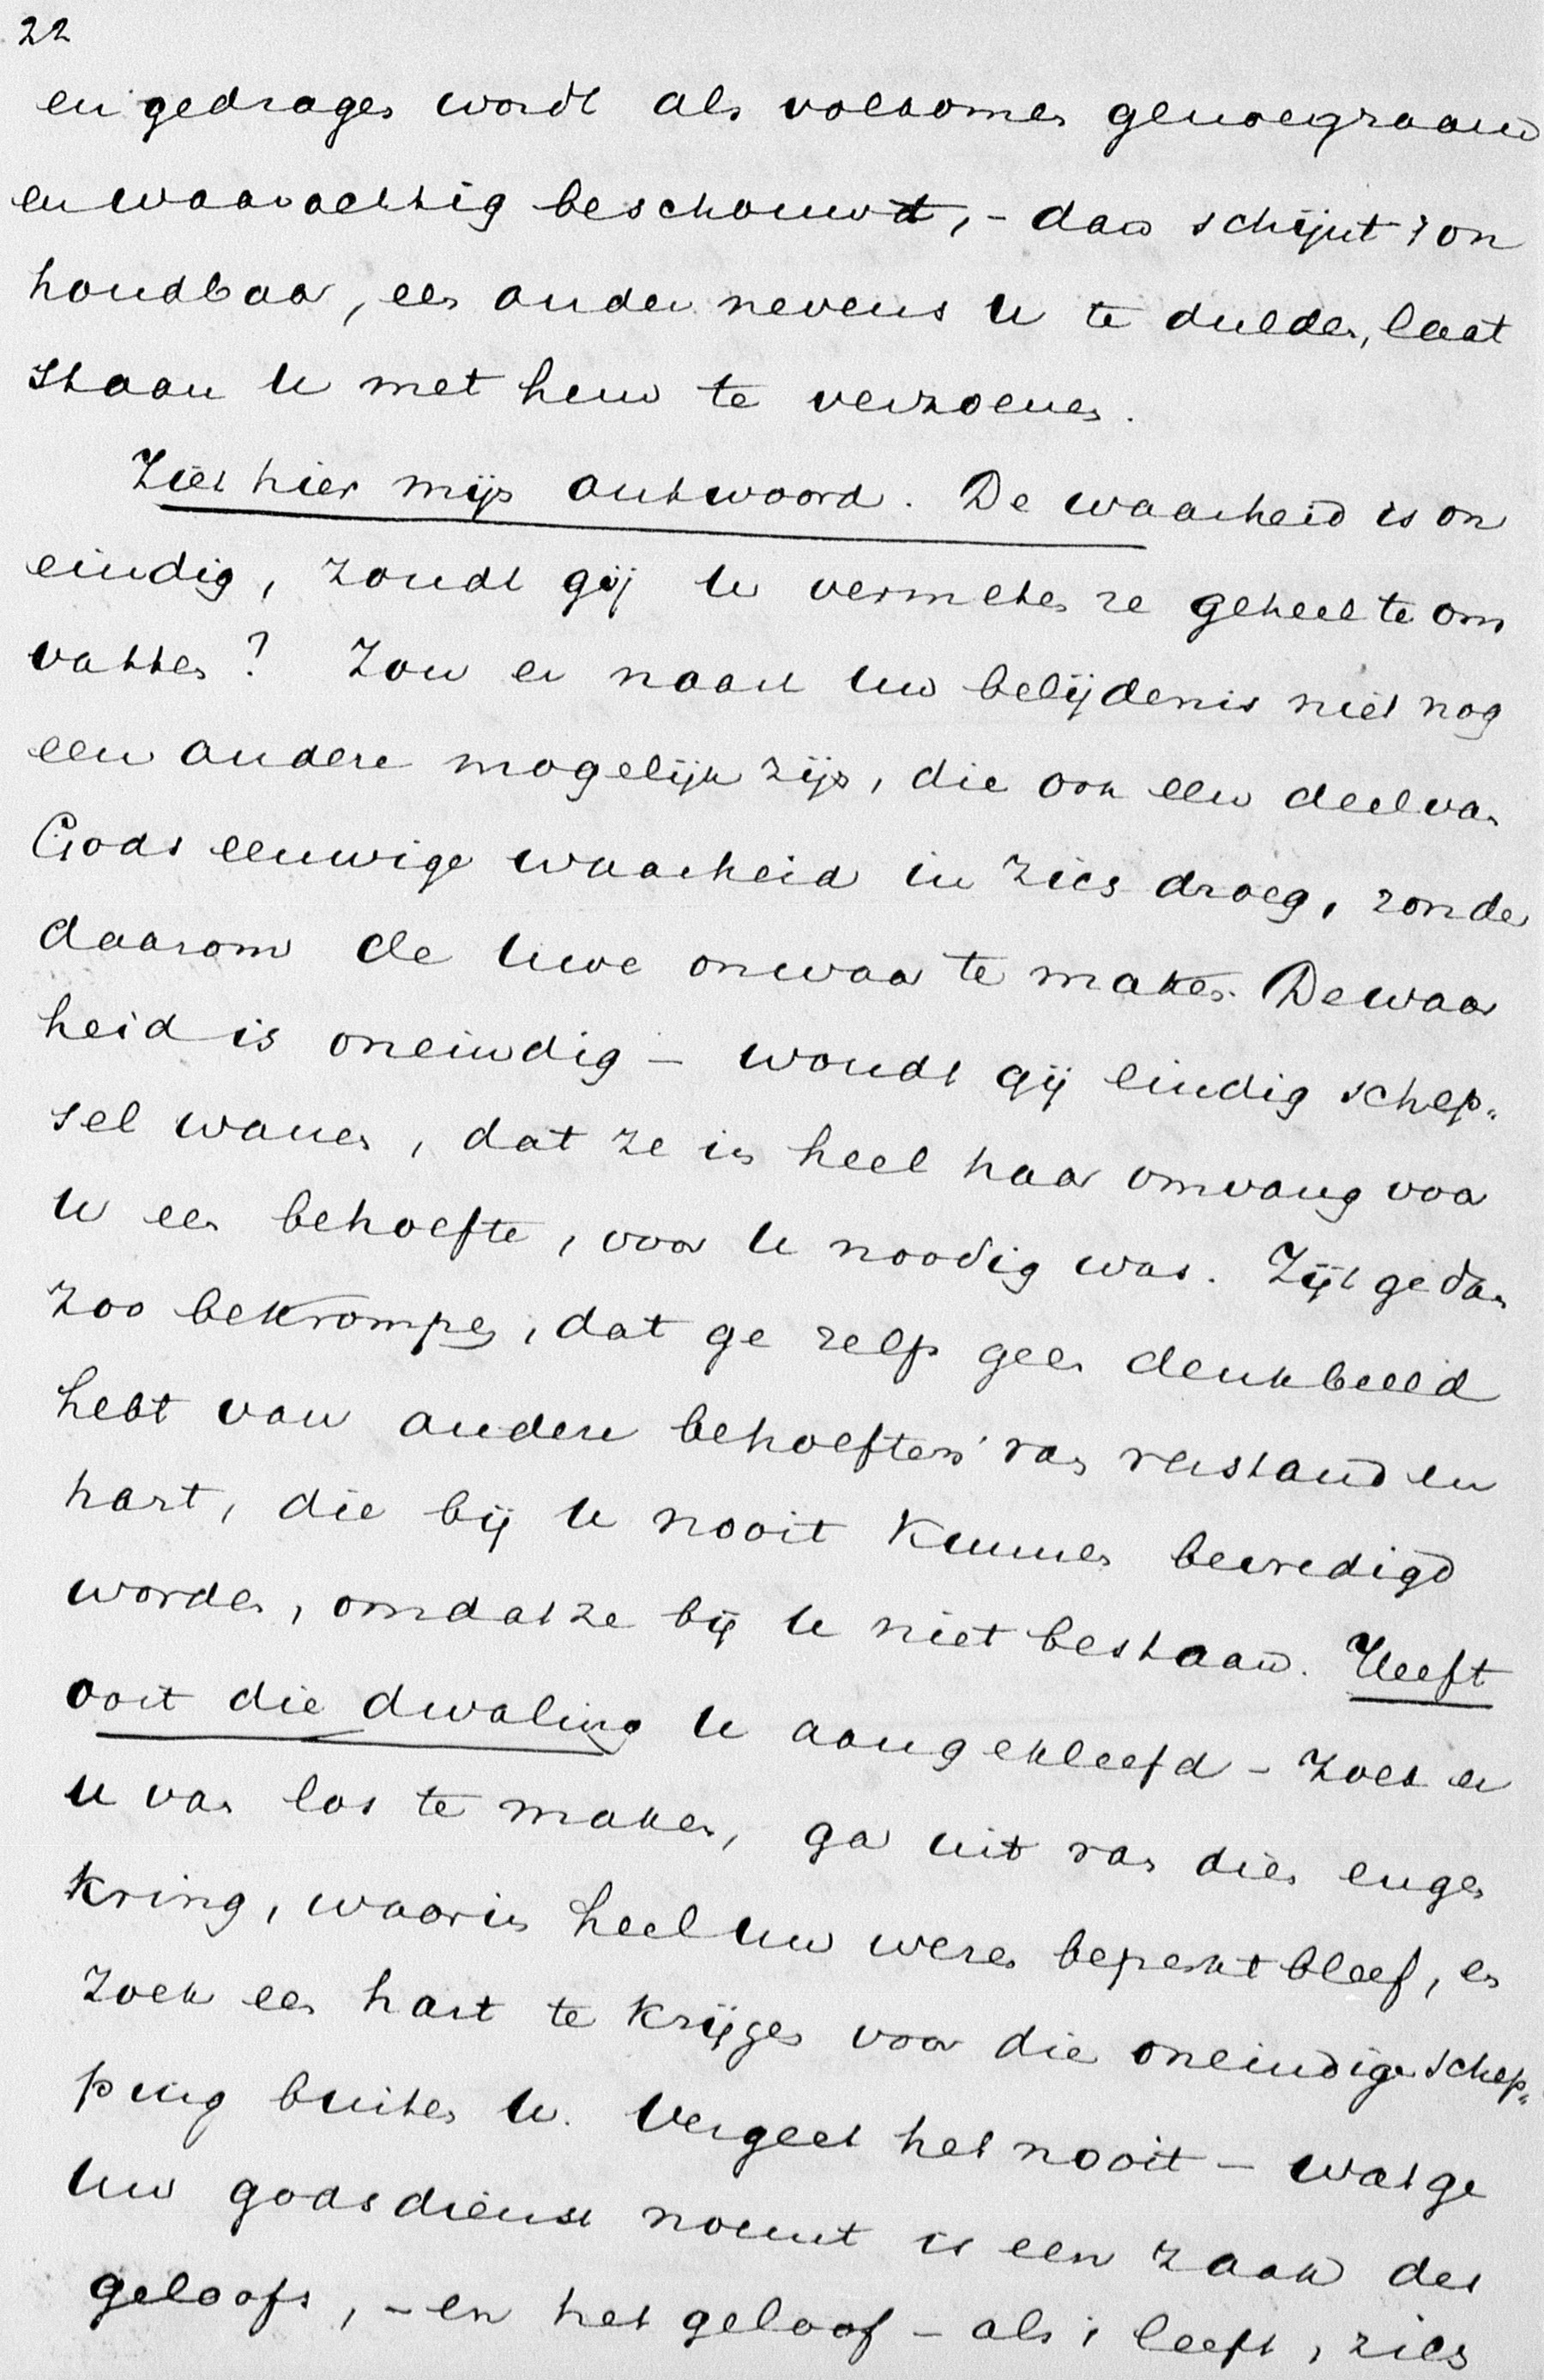 22
en gedragen wordt als volkomen genoegzaam
en waarachtig beschouwt, - dan schijnt 't on
houdbaar, een ander nevens U te dulden, laat
staan U met hem te verzoenen.
Ziet hier mijn antwoord. De waarheid is on
eindig, zoudt gij U vermeten ze geheel te om
vatten? Zou er naast Uw belijdenis niet nog
een andere mogelijk zijn, die ook een deel van
Gods eeuwige waarheid in zich droeg, zonder
daarom de Uwe onwaar te maken. De waar
heid is oneindig - woudt gij eindig schep„
sel wanen, dat ze in heel haar omvang voor
U een behoefte, voor U noodig was. Zijt ge dan
zoo bekrompen, dat ge zelfs geen denkbeeld
hebt van andere behoeften van verstand en
hart, die bij U nooit kunnen bevredigd
worden, omdat ze bij U niet bestaan. Heeft
ooit die dwaling U aangekleefd - zoek er
U van los te maken, ga uit van dien engen
kring, waarin heel Uw wezen beperkt bleef, en
zoek een hart te krijgen voor die oneindige schep„
ping buiten U. Vergeet het nooit - wat ge
Uw godsdienst noemt is een zaak des
geloofs, - en het geloof - als 't leeft, zich